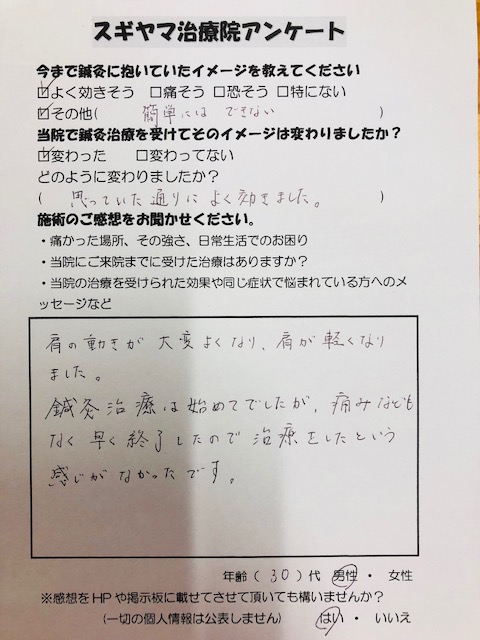 スギヤマ治療院アンケート
今まで鍼灸に抱いていたイメージを教えてください
☑よく効きそう □痛そう □恐そう □特にない
☑その他( 簡単にはできない )
当院で鍼灸治療を受けてそのイメージは変わりましたか？
☑変わった □変わってない
どのように変わりましたか？
( 思っていた通りによく効きました。 )
施術のご感想をお聞かせください。
・痛かった場所、その強さ、日常生活でのお困り
・当院にご来院までに受けた治療はありますか？
・当院の治療を受けられた効果や同じ症状で悩まれている方へのメ
ッセージなど
肩の動きが大変よくなり、肩が軽くなり
ました。
鍼灸治療は始めてでしたが、痛みなども
なく早く終了したので治療をしたという
感じがなかったです。
年齢（ 30 ）代 男性 ・ 女性
※感想をHPや掲示板に載せてさせて頂いても構いませんか？
(一切の個人情報は公表しません) はい ・ いいえ